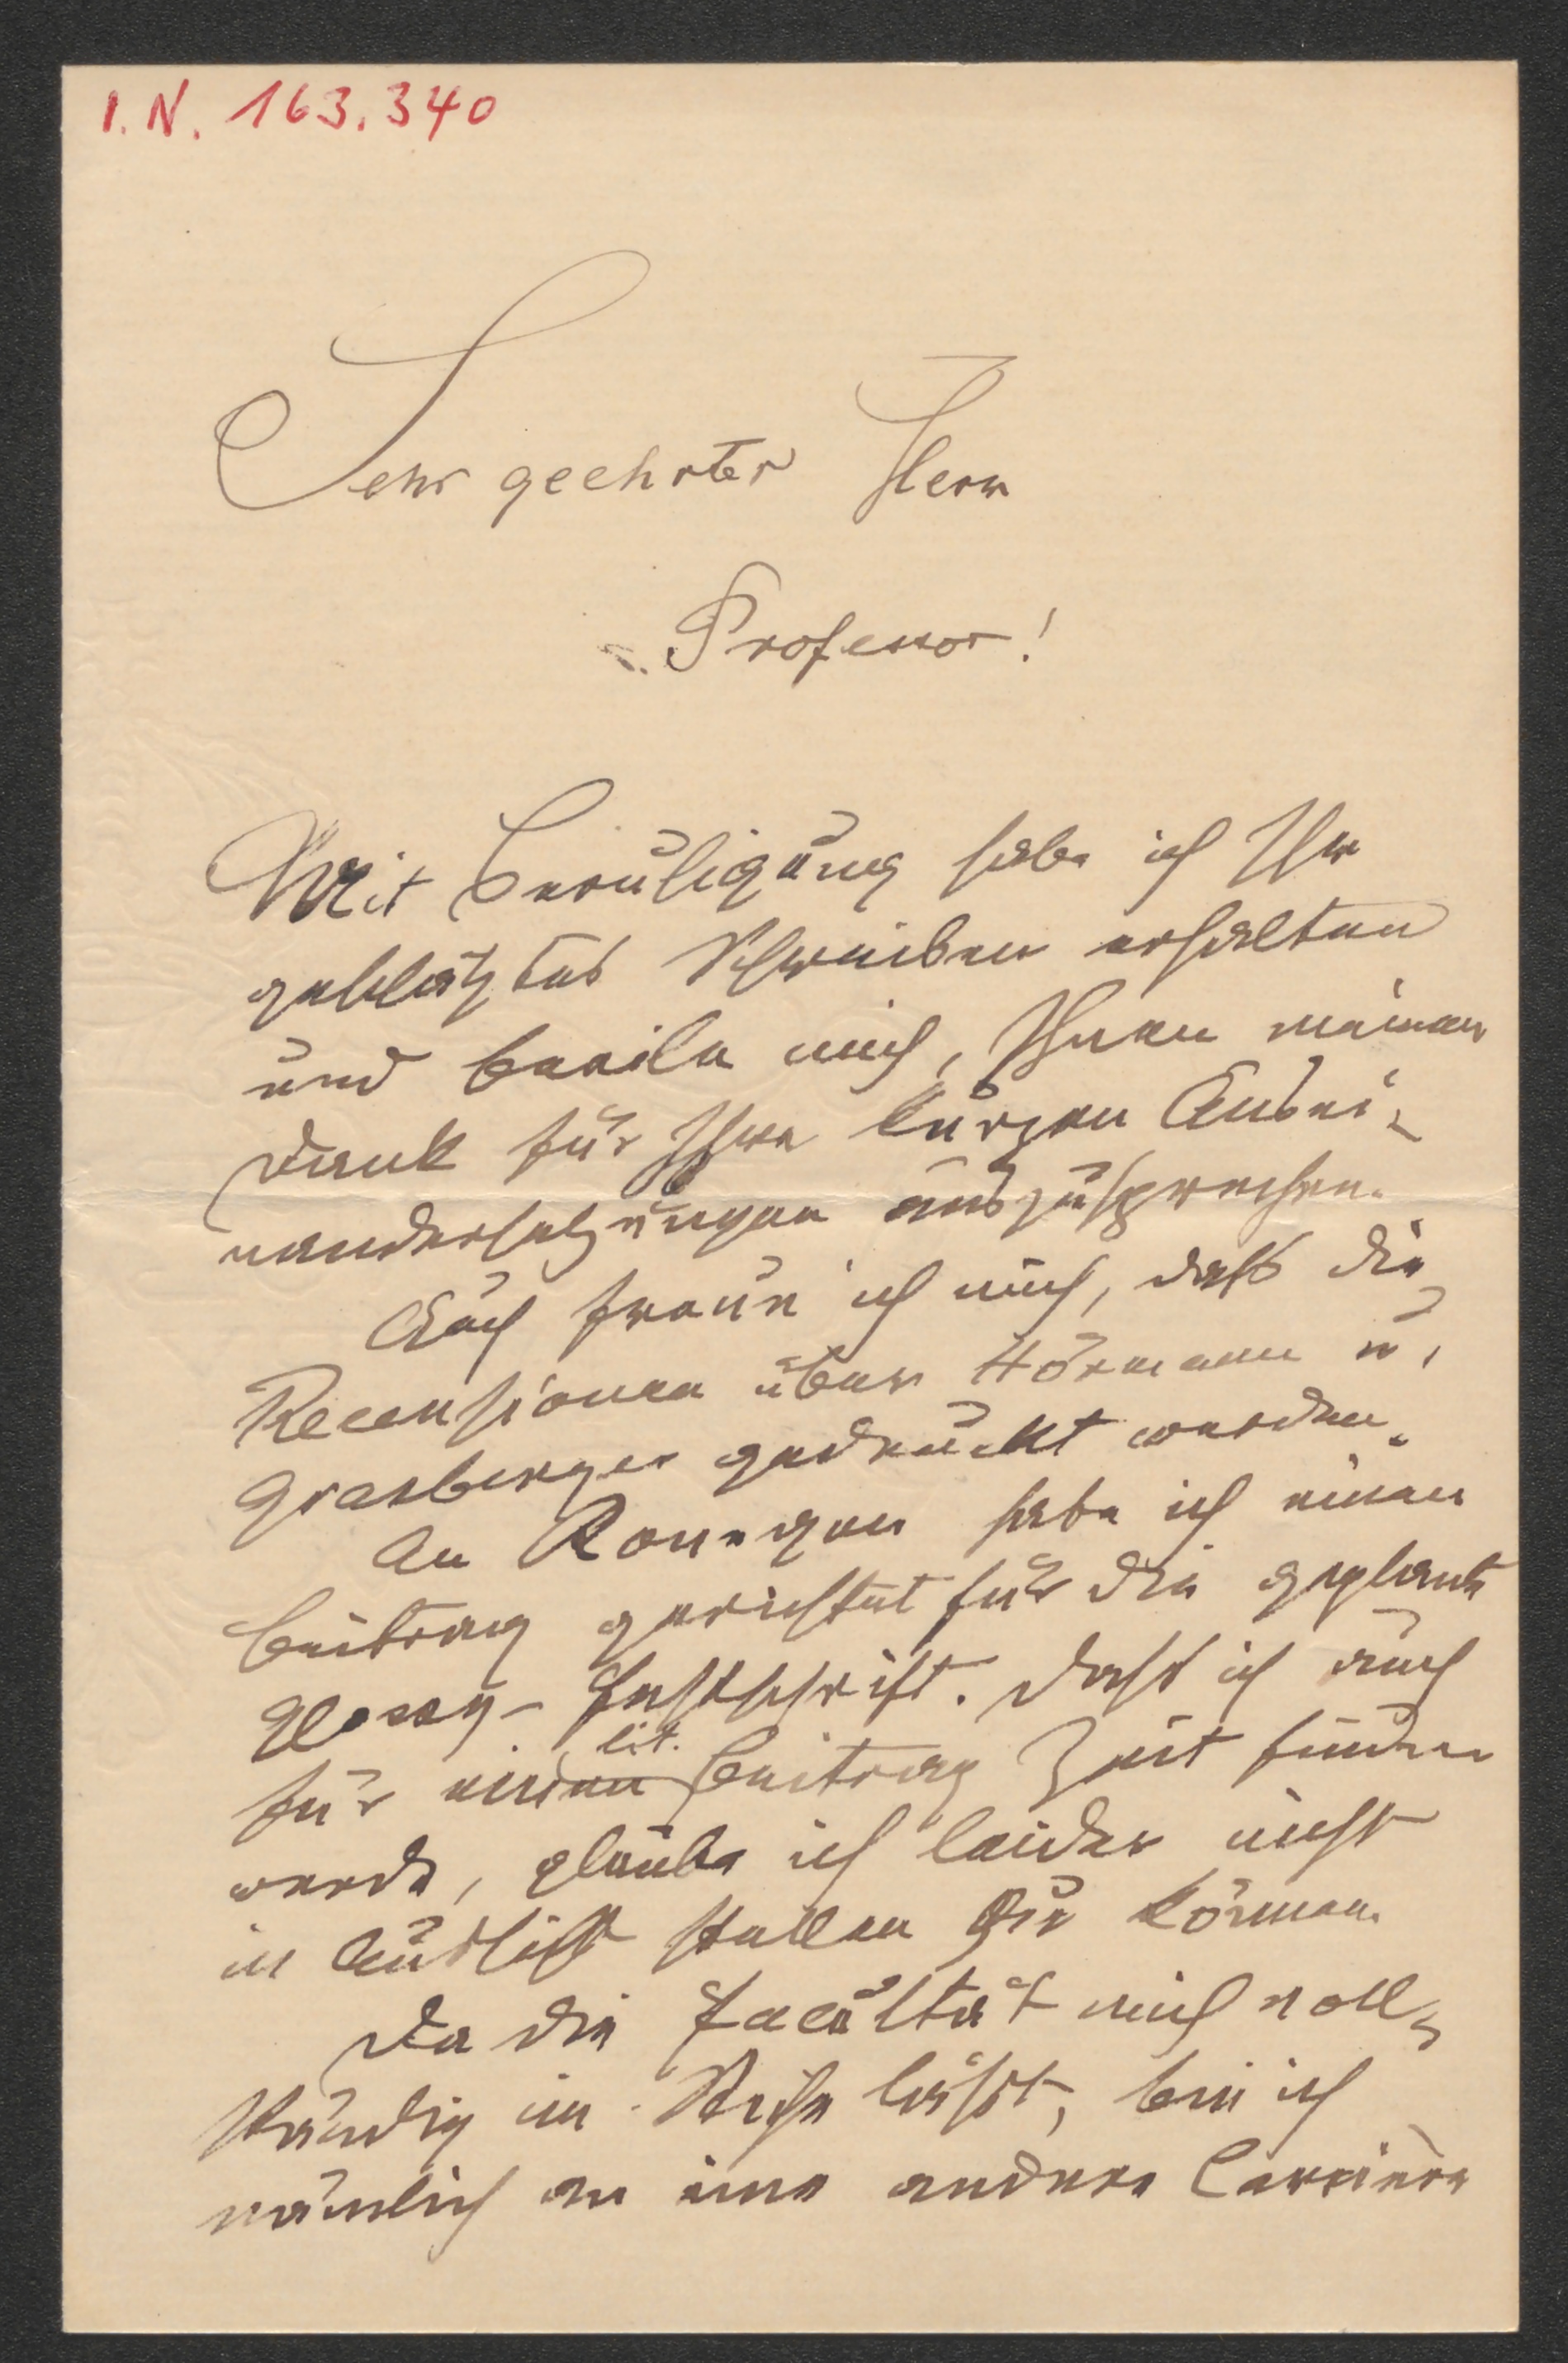 I. N. 163.340
Sehr geehrter Herr
Professor!
Mit Beruhigung habe ich Ihr
geschätztes Schreiben erhalten
und beeile mich, Ihnen meinen
Dank für Ihre kurzen Ausei-
nandersetzungen auszusprechen.
Auch freue ich mich, dass die
Recensionen über Hörmann u.
Grasberger gedruckt werden.
An Rosegger habe ich einen
Beitrag gerichtet für die geplante
Glossy-Festschrift. Dass ich auch
für einen lit. Beitrag Zeit finden
werde, glaube ich leider nicht
in Aussicht stellen zu können.
Da die Facultät mich voll-
ständig im Stiche lässt, bin ich
nämlich an eine andere Carrière